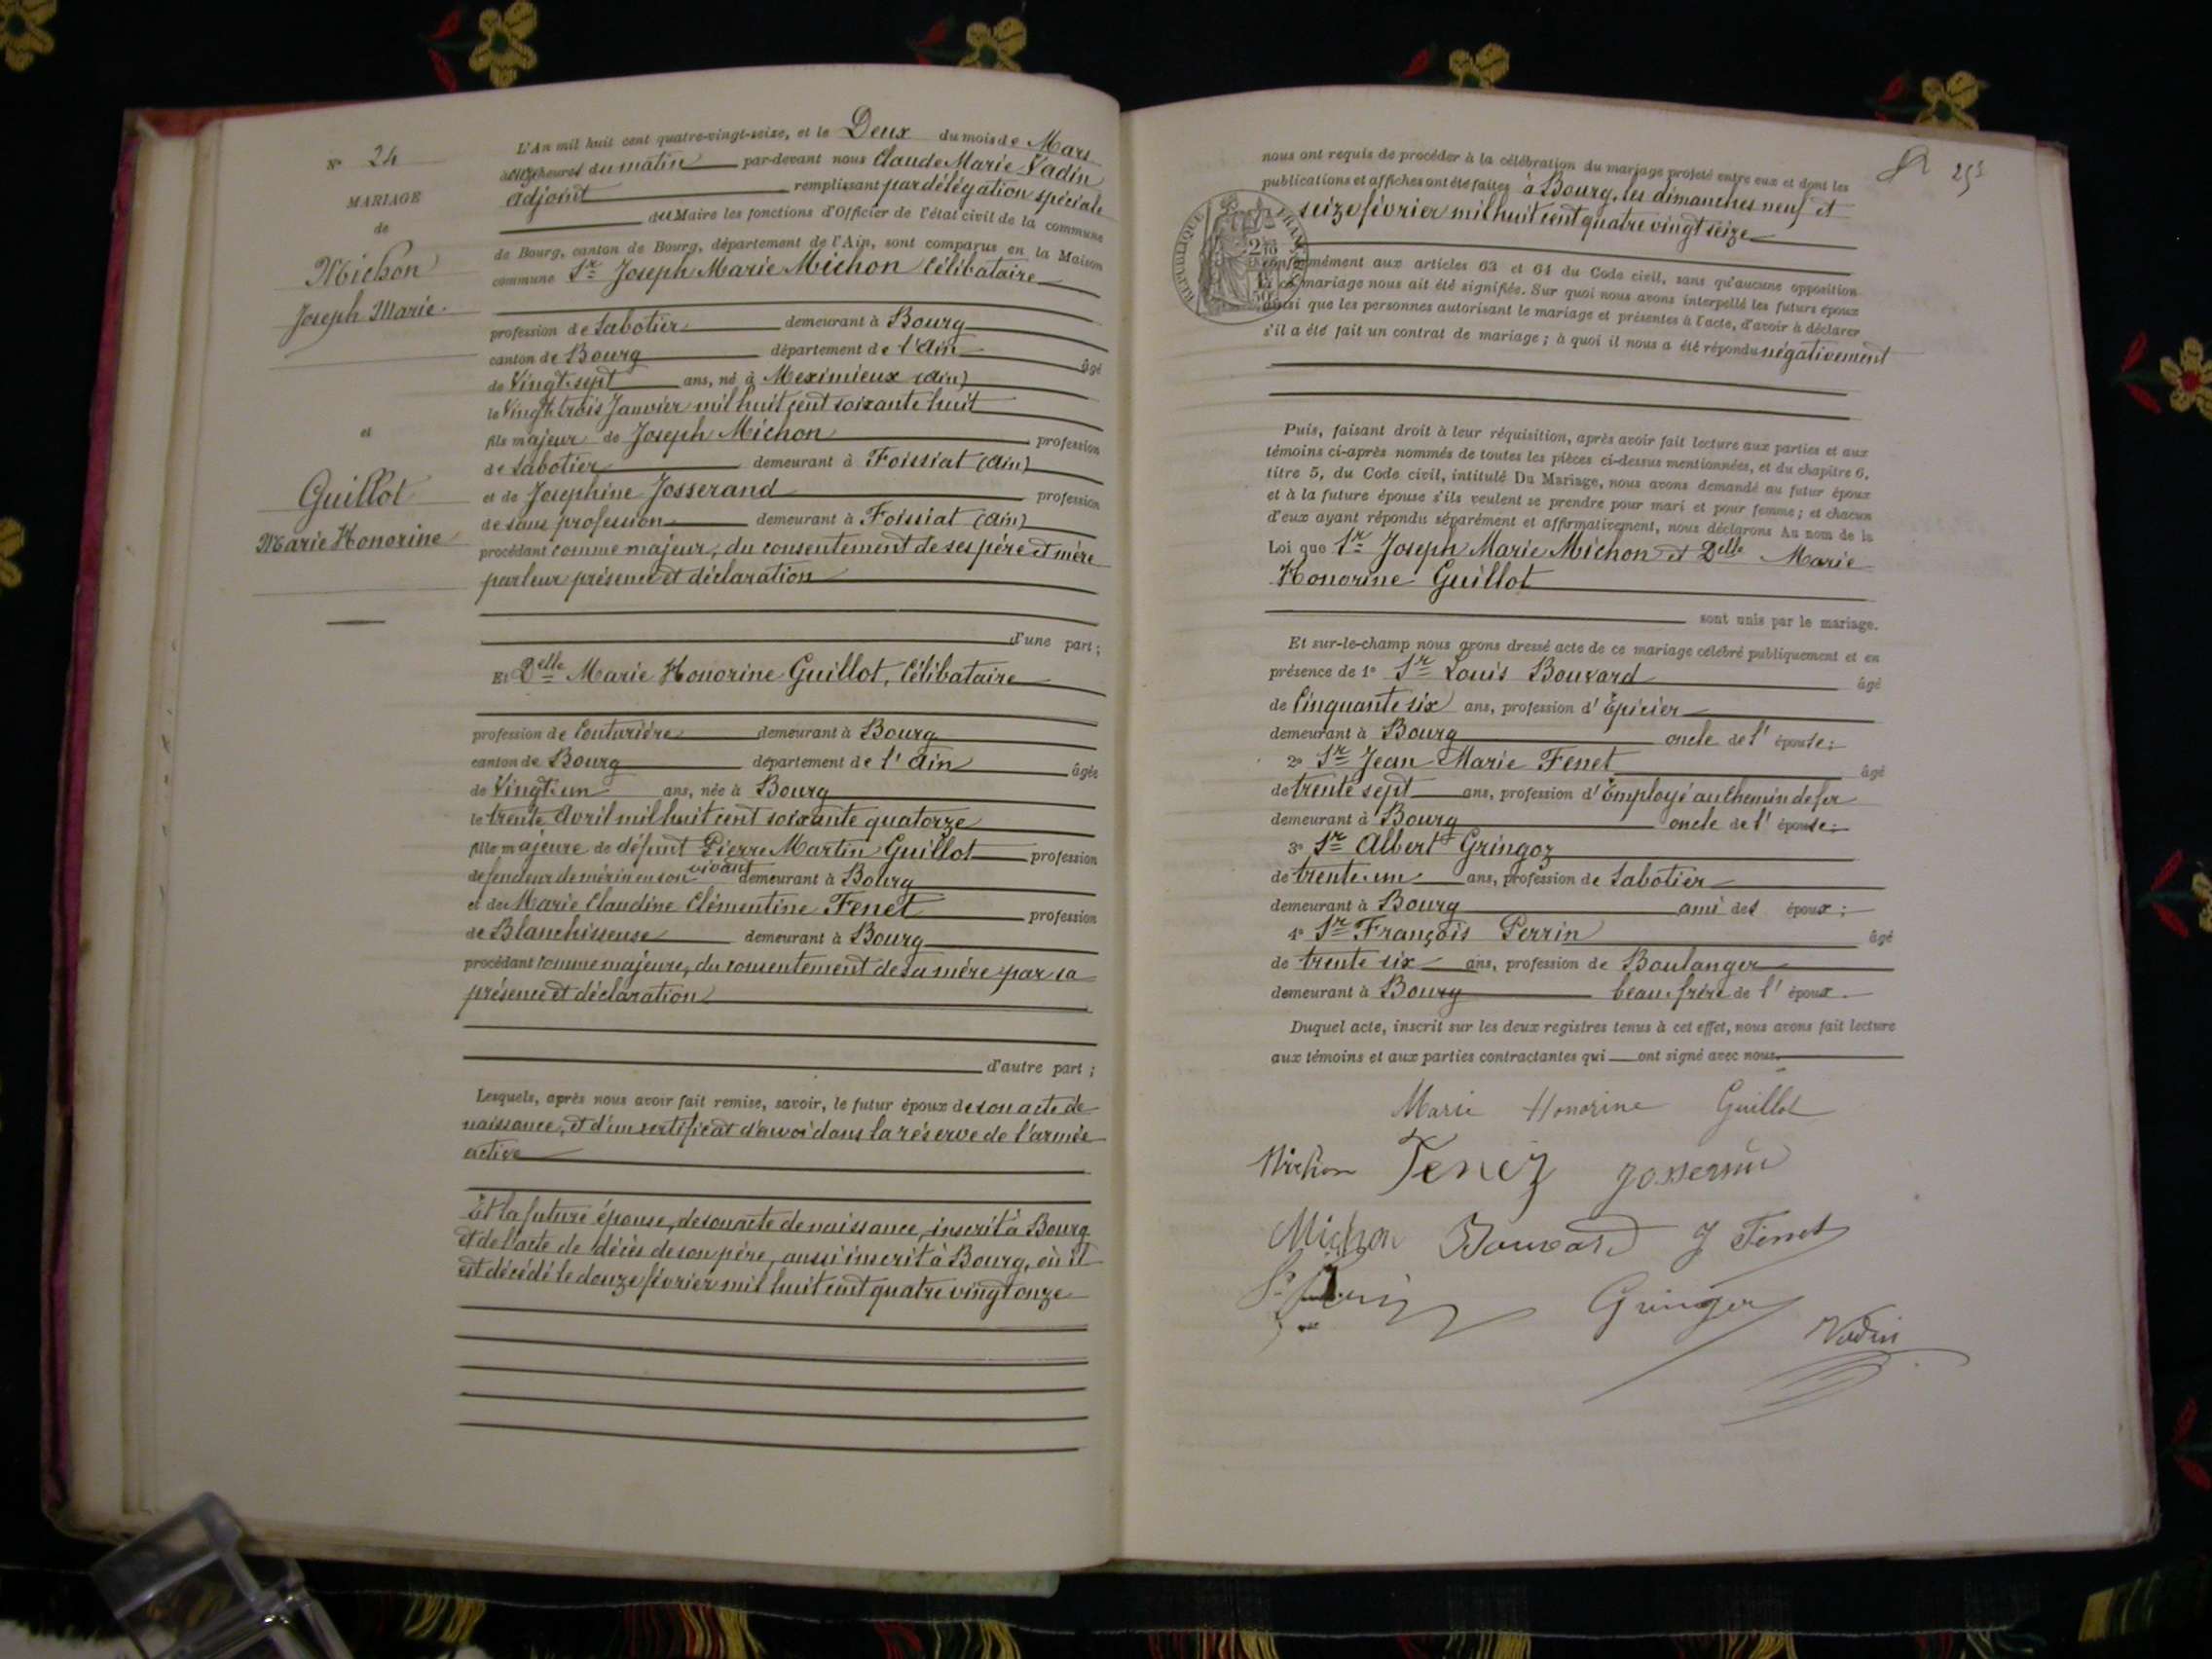 N° 24
MARIAGE
de
Michon
Joseph Marie
et
Guillot
Marie Honorine
L'An mil huit cent quatre-vingt-seize, et le Deux du mois de Mars
à onze heures du matin par-devant nous Claude Marie Vadin
adjoint remplissant par délégation spéciale
du Maire les fonctions d'Officier de l'état civil de la commune
de Bourg, canton de Bourg, département de l'Ain, sont comparus en la Maison
commune Sr Joseph Marie Michon Célibataire
profession de Sabotier demeurant à Bourg
canton de Bourg département de l'Ain âgé
de Vingt-sept ans, né à Meximieux (Ain)
le Vingt trois Janvier mil huit cent soixante huit
fils majeur de Joseph Michon profession
de Sabotier demeurant à Foissiat (Ain)
et de Josephine Josserand profession
de sans profession demeurant à Foissiat (Ain)
procédant comme majeur, du consentement de ses père et mère
par leur présence et déclaration
d'une part ;
Et Delle Marie Honorine Guillot, Célibataire
profession de Couturière demeurant à Bourg
canton de Bourg département de l'Ain âgée
de Vingt-un ans, née à Bourg
le trente Avril mil huit cent soixante quatorze
fille majeure de défunt Pierre Martin Guillot profession
de fendeur de mérin en son vivant demeurant à Bourg
et de Marie Claudine Clémentine Fenet profession
de Blanchisseuse demeurant à Bourg
procédant comme majeure, du consentement de sa mère par sa
présence et déclaration
d'autre part ;
Lesquels, après nous avoir fait remise, savoir, le futur époux de son acte de
naissance, et d'un certificat d'envoi dans la réserve de l'armée
active
Et la future épouse, de son acte de naissance, inscrit à Bourg
et de l'acte de décès de son père, aussi inscrit à Bourg, où il
est décédé le douze février mil huit cent quatre vingt onze
nous ont requis de procéder à la célébration du mariage projeté entre eux et dont les
publications et affiches ont été faites à Bourg, les dimanches neuf et
seize février mil huit cent quatre vingt seize
RÉPUBLIQUE FRANÇAISE
conformément aux articles 63 et 64 du Code civil, sans qu'aucune opposition
à ce mariage nous ait été signifiée. Sur quoi nous avons interpellé les futurs époux
ainsi que les personnes autorisant le mariage et présentes à l'acte, d'avoir à déclarer
s'il a été fait un contrat de mariage ; à quoi il nous a été répondu négativement
Puis, faisant droit à leur réquisition, après avoir fait lecture aux parties et aux
témoins ci-après nommés de toutes les pièces ci-dessus mentionnées, et du chapitre 6,
titre 5, du Code civil, intitulé Du Mariage, nous avons demandé au futur époux
et à la future épouse s'ils veulent se prendre pour mari et pour femme ; et chacun
d'eux ayant répondu séparément et affirmativement, nous déclarons Au nom de la
Loi que Sr Joseph Marie Michon et Delle Marie
Honorine Guillot
sont unis par le mariage.
Et sur-le-champ nous avons dressé acte de ce mariage célébré publiquement et en
présence de 1° Sr Louis Bouvard âgé
de Cinquante six ans, profession d'Épicier
demeurant à Bourg oncle de l'épouse ;
2° Sr Jean Marie Fenet âgé
de trente sept ans, profession d'Employé au Chemin de fer
demeurant à Bourg oncle de l'épouse ;
3° Sr Albert Gringoz
de trente-un ans, profession de Sabotier
demeurant à Bourg ami des époux ;
4° Sr François Perrin âgé
de trente six ans, profession de Boulanger
demeurant à Bourg beau-frère de l'époux.
Duquel acte, inscrit sur les deux registres tenus à cet effet, nous avons fait lecture
aux témoins et aux parties contractantes qui ont signé avec nous.
Marie Honorine Guillot
Michon Fenez
Michon Bouvard J Fenet
Gringoz
Vadin